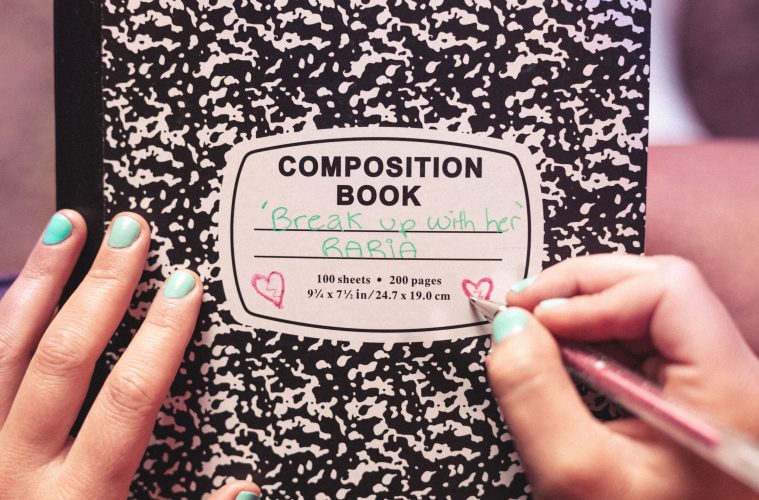 COMPOSITION
BOOK
'Break up with her'
RARiA
100 sheets • 200 pages
9¾ x 7½ in/24.7 x 19.0 cm